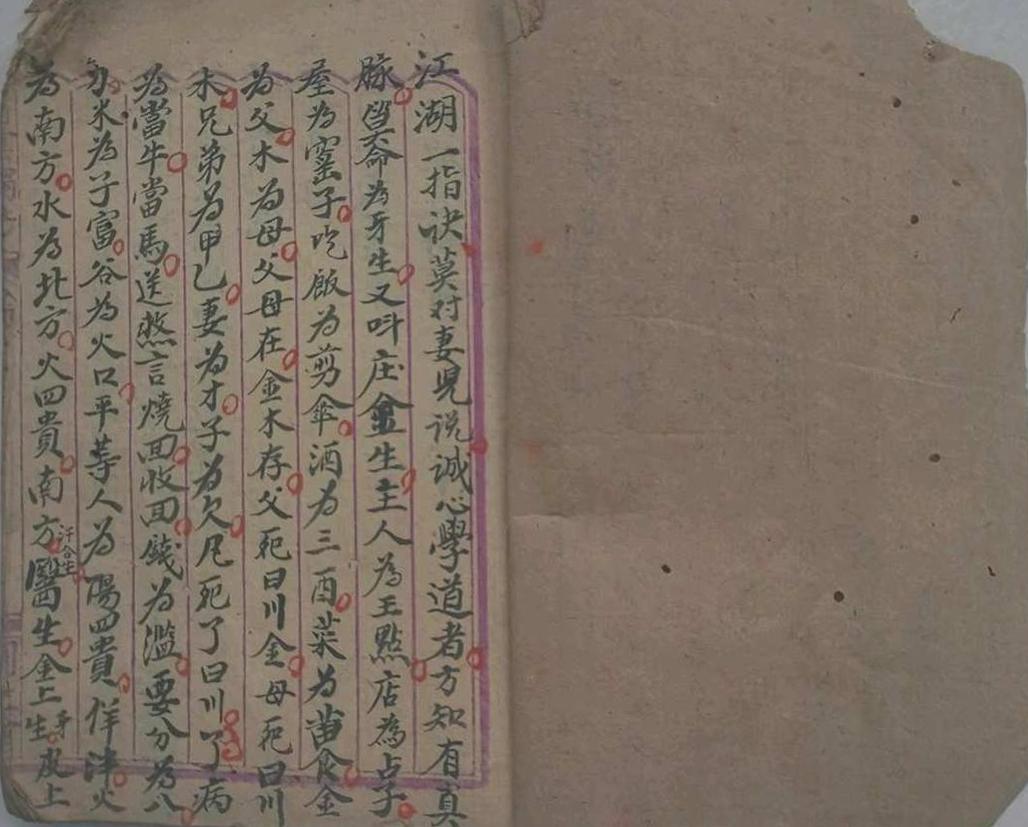 江湖一指诀莫对妻児说誠心學道者方知有真
脉筭命為牙生又呌庄金生主人為王點店為占子
屋為窰子吃飯为剪傘酒为三酉菜为苗食金
为父木为母父母在金木存父死曰川金母死曰川
木兄弟为甲乙妻为才子为欠凡死了曰川了病
為當牛當馬送憨言燒回收回錢为濫要分為八
米為子富谷为火口平等人为陽四貴佯津火
為南方水為北方火四貴南方醫生金上生皮上
汗合生
牙